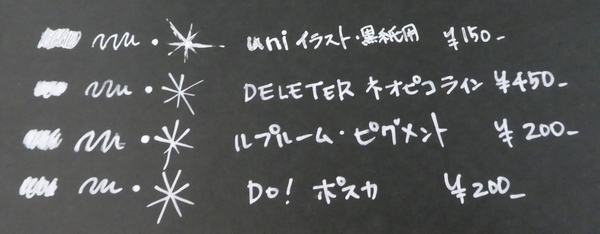 uni イラスト・黒紙用 ¥150-
DELETER ネオピコライン ¥450-
ルプルーム・ピグメント ¥200-
Do! ポスカ ¥200-